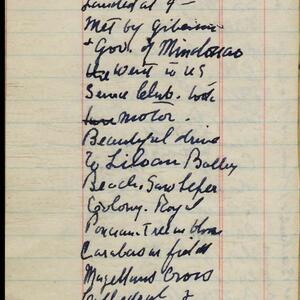 Landed at 9 —
Met by
+ Gov. of Mindanao
Went to US
Service Club. took
motor.
Beautiful drive
To Liloan
Beach. Saw Leper
Colony. Royal
Tree in bloom
Carabao in field
Magellans Cross
Cathedral